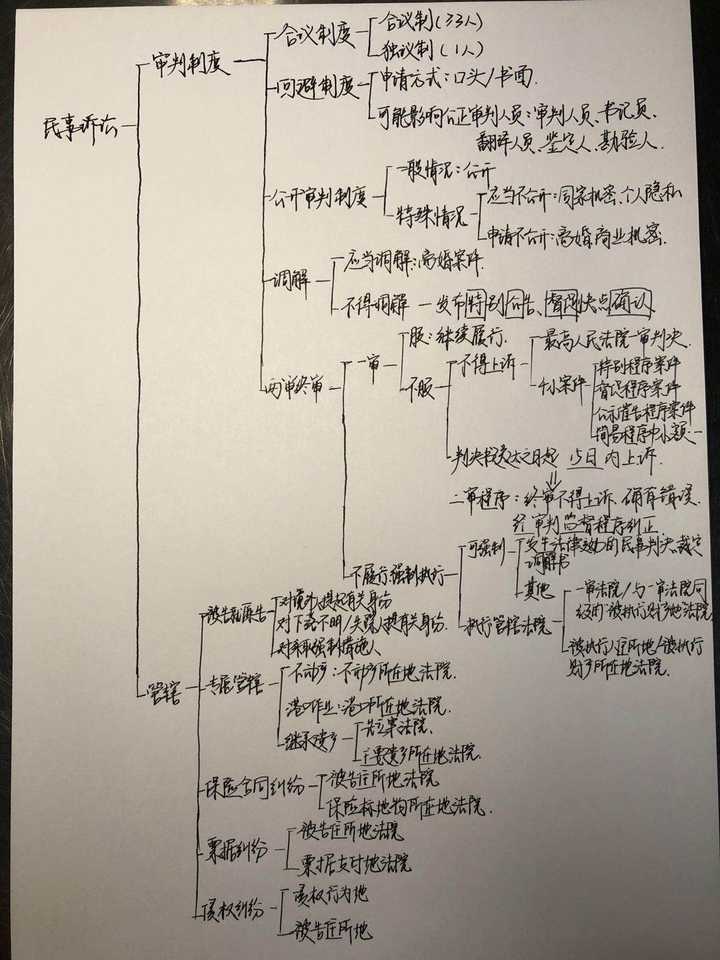 民事诉讼
审判制度
合议制度
合议制(≥3人)
独议制(1人)
回避制度
申请方式:口头/书面.
可能影响公正审判人员:审判人员、书记员、
翻译人员、鉴定人、勘验人.
公开审判制度
一般情况:公开
特殊情况
应当不公开:国家机密、个人隐私
申请不公开:离婚、商业机密.
调解
应当调解:离婚案件.
不得调解 — 发布特别公告、督促快点确认
两审终审
一审
服:继续履行.
不服
不得上诉
最高人民法院一审判决.
小案件
特别程序案件
督促程序案件
公示催告程序案件
简易程序中小额…
判决书送达之日起 15日内上诉.
二审程序:终审不得上诉、确有错误、
经审判监督程序纠正.
不履行强制执行
可强制
发生法律效力的民事判决、裁定
调解书
其他
执行管辖法院
一审法院/与一审法院同
级的被执行财产地法院
被执行人住所地/被执行
财产所在地法院.
管辖
被告就原告
对境外人提起有关身份
对下落不明/失踪人提有关身份.
对采取强制措施人
专属管辖
不动产:不动产所在地法院.
港口作业:港口所在地法院.
继承遗产
主要遗产所在地法院.
保险合同纠纷
被告住所地法院
保险标地物所在地法院.
票据纠纷
被告住所地法院
票据支付地法院
侵权纠纷
侵权行为地
被告住所地